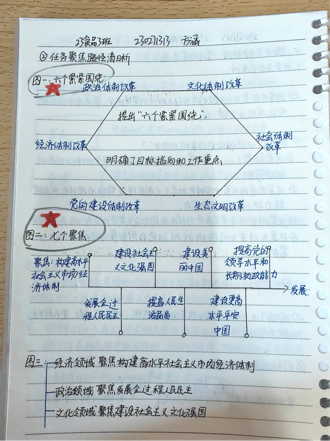 23食品3班 2302131313 方函
②任务聚焦路径清晰
图一:六个紧紧围绕
政治体制改革 文化体制改革
提出“六个紧紧围绕”,
经济体制改革 社会体制
改革
明确了目标指向和工作重点
党的建设体制改革 生态文明改革
图二:七个聚焦
聚焦:构建高水平
社会主义市场经
济体制
建设社会主
义文化强国
建设美
丽中国
提高党的
领导水平和
长期执政能力
发展
发展全过
程人民民主
提高人民生
活品质
建设更高
水平平安
中国
图三
经济领域 聚焦构建高水平社会主义市场经济体制
政治领域 聚焦发展全过程人民民主
文化领域 聚焦建设社会主义文化强国